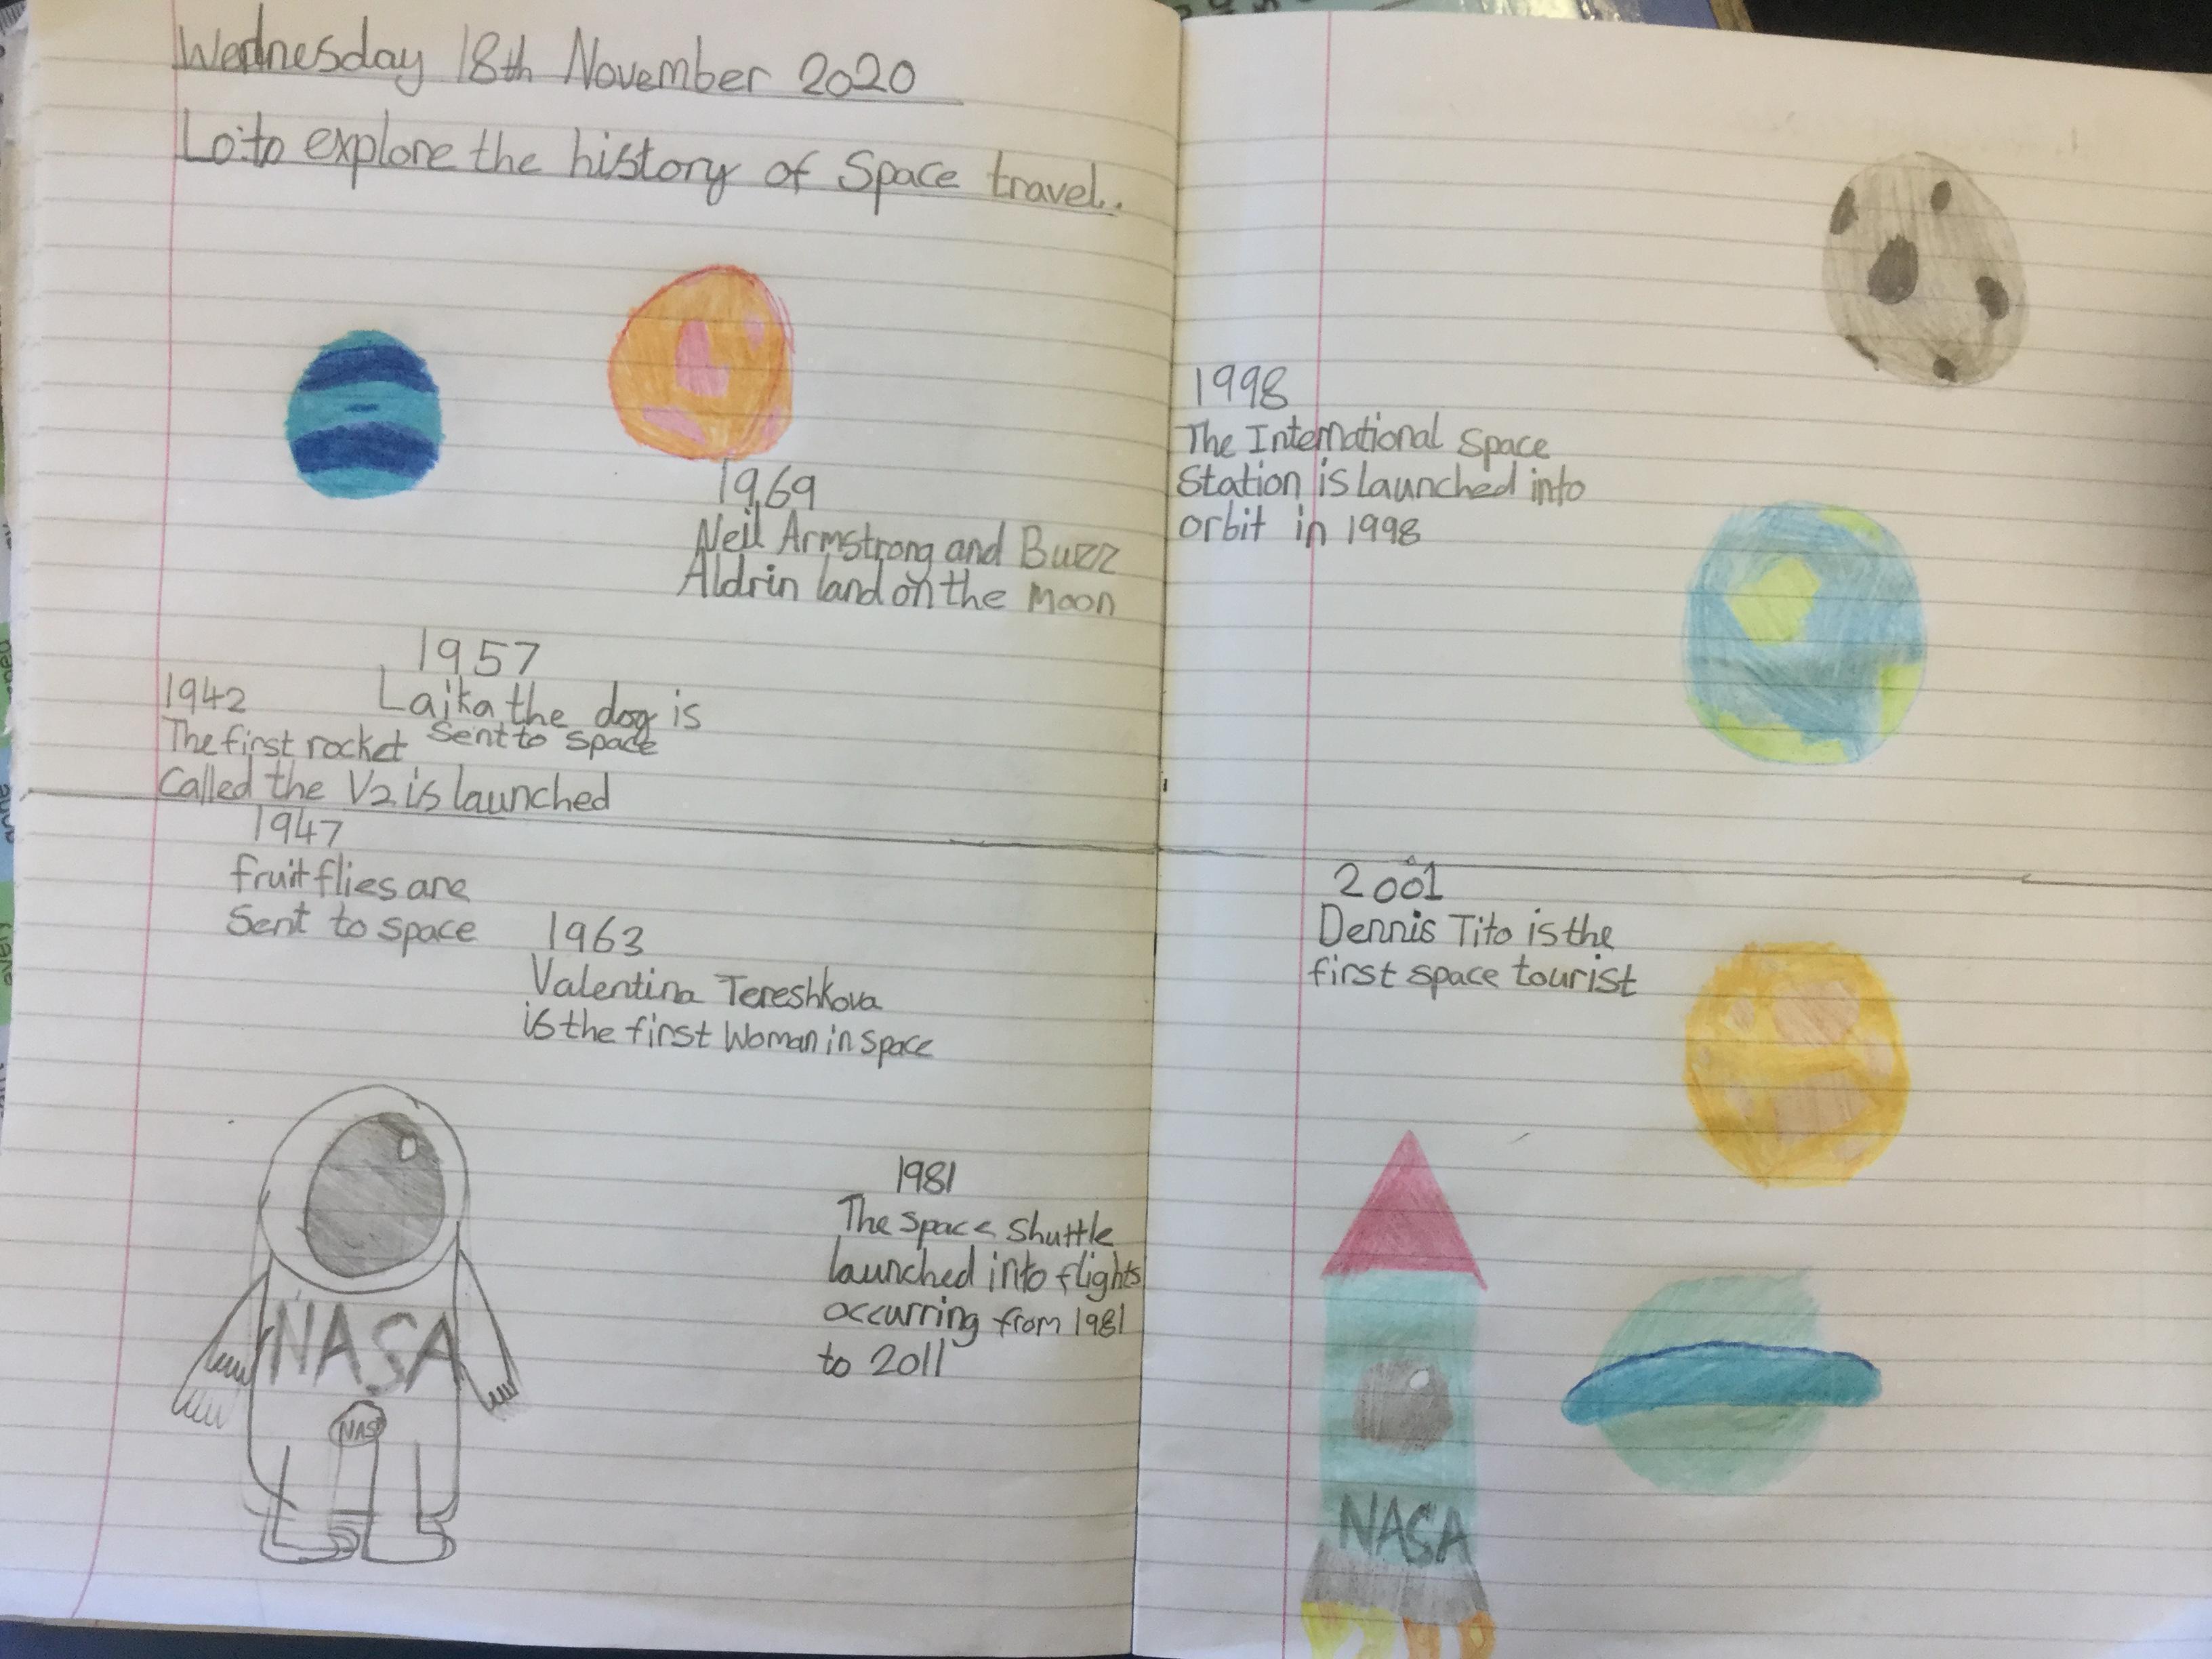 Wednesday 18th November 2020
Lo:to explore the history of Space travel.
1969
Neil Armstrong and Buzz
Aldrin land on the Moon
1957
Laika the dog is
Sent to space
1942
The first rocket
Called the V2 is launched
1947
fruit flies are
Sent to space
1963
Valentina Tereshkova
is the first Woman in space
1981
The space shuttle
launched into flights
occurring from 1981
to 2011
NASA
NAS
1998
The International Space
Station is launched into
orbit in 1998
2001
Dennis Tito is the
first space tourist
NASA